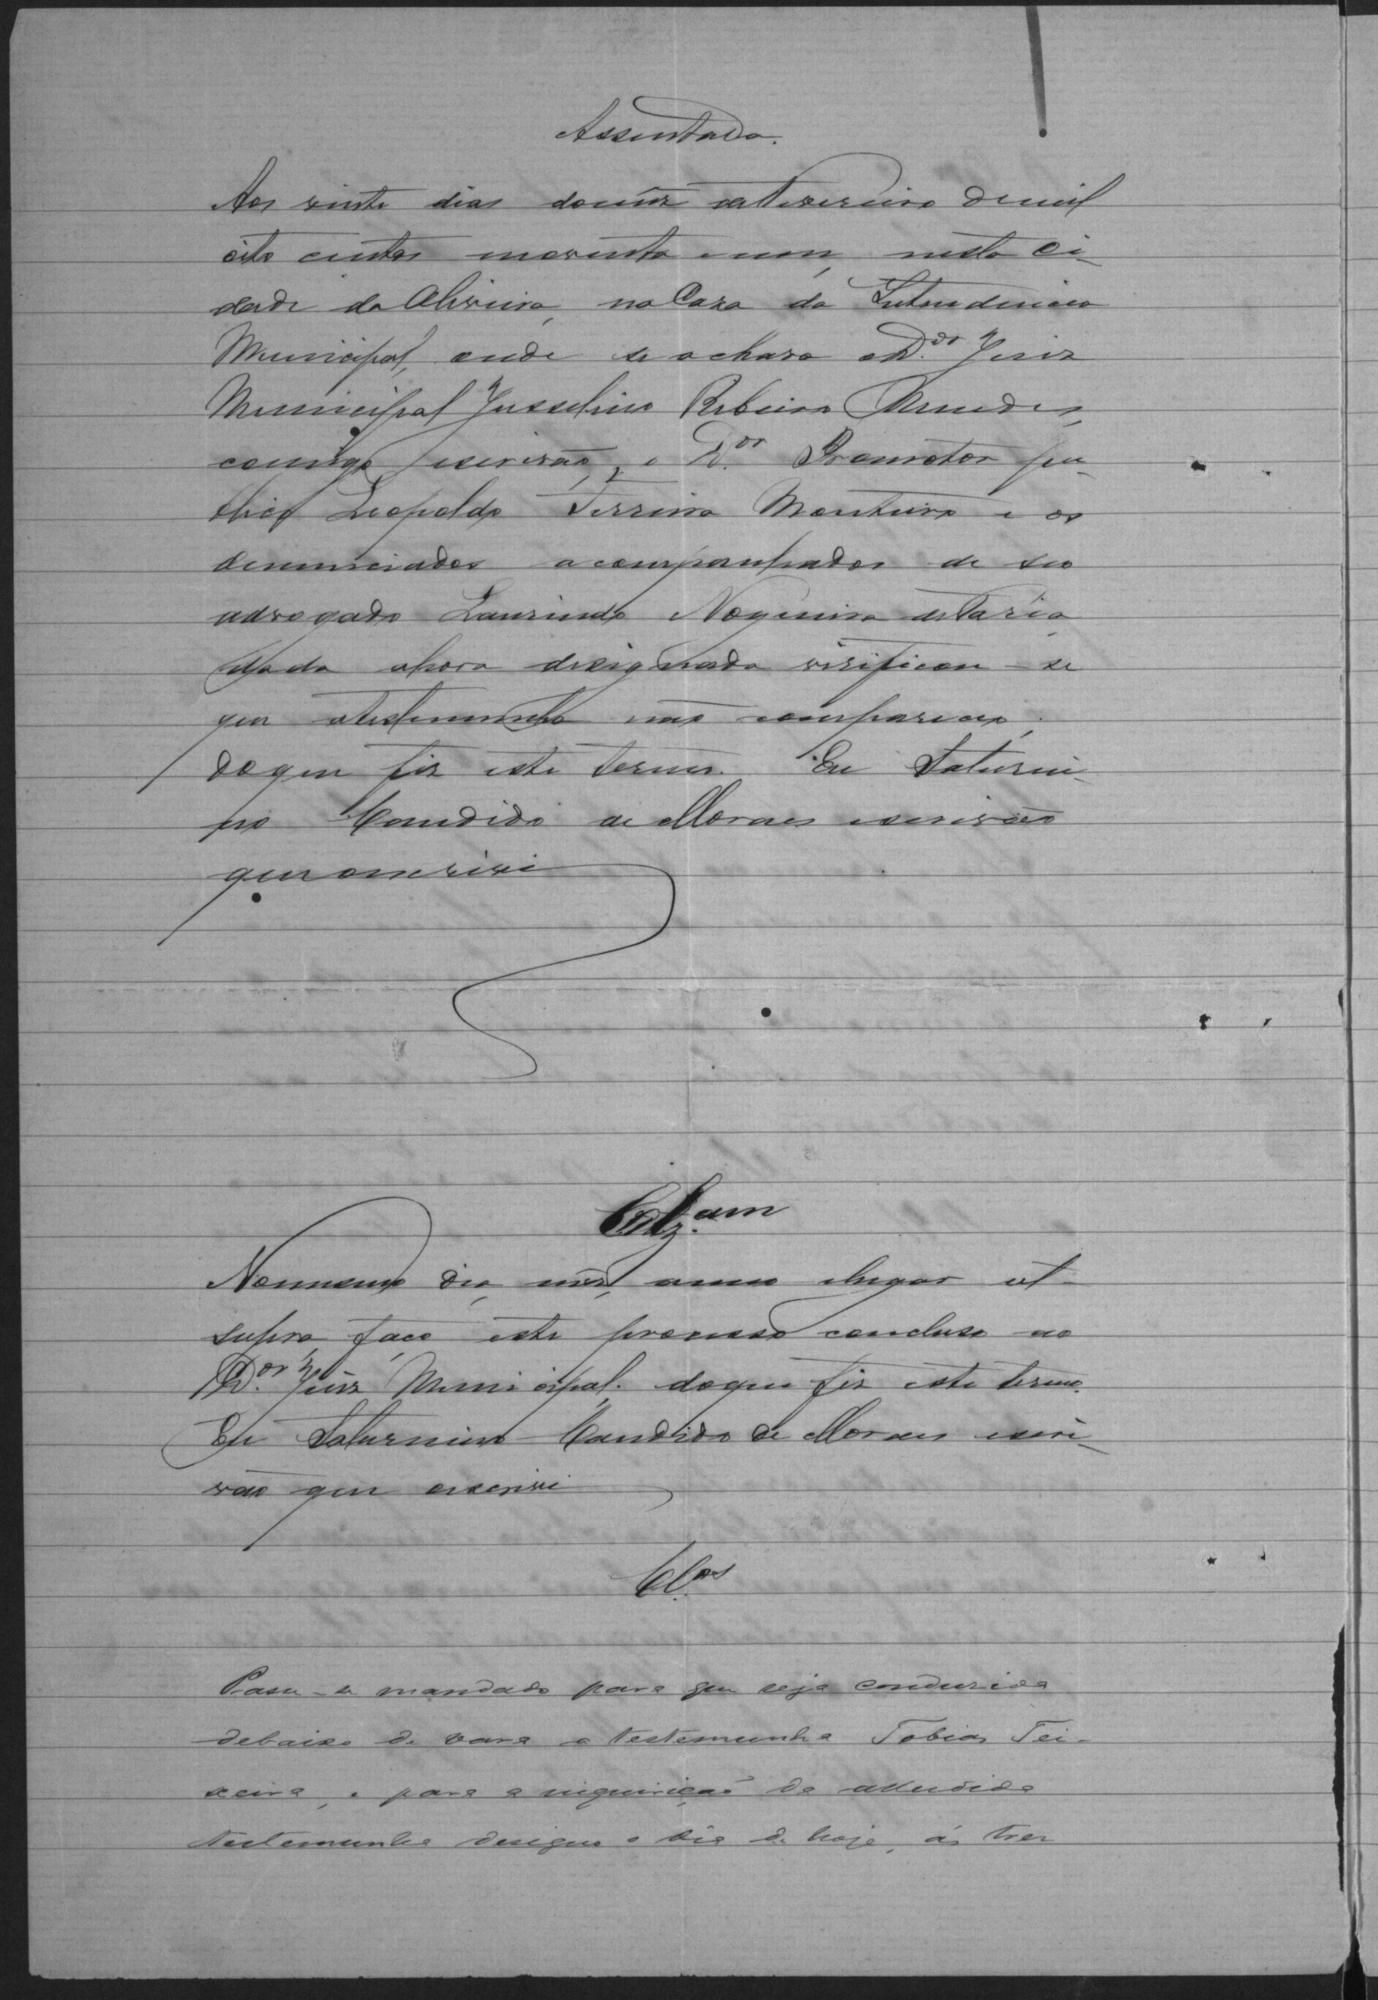 Assentada.
Aos vinte dias do mez de Fevereiro de mil
oito centos noventa e um, nesta Ci-
dade da Oliveira, na Caza da Intendencia
Municipal, onde se achava o D.or Juiz
Municipal Jusselino Ribeiro Mendes,
comigo escrivão, e D.or Promotor pu-
blico Leopoldo Ferreira Monteiro e os
denunciados acompanhados de seo
advogado Laurindo Nogueira de Faria
dada ahora designada virificou-se
que atestemunha não compareceo,
do que fiz este termo. Eu Saturni-
no Candido de Moraes escrivão
que o escrivi
Clz.am
No mesmo dia, mês, anno elugar ut-
supra, faço este processo concluso ao
D.or Juiz Municipal. do que fiz este termo.
Eu Saturnino Candido de Moraes escri-
vão que o escrivi
Cl.os
Passe-se mandado para que seja conduzida
debaixo de vara a testemunha Tobias Tei-
xeira, e para a inquirição da alludida
testemunha designo o dia de hoje, ás tres